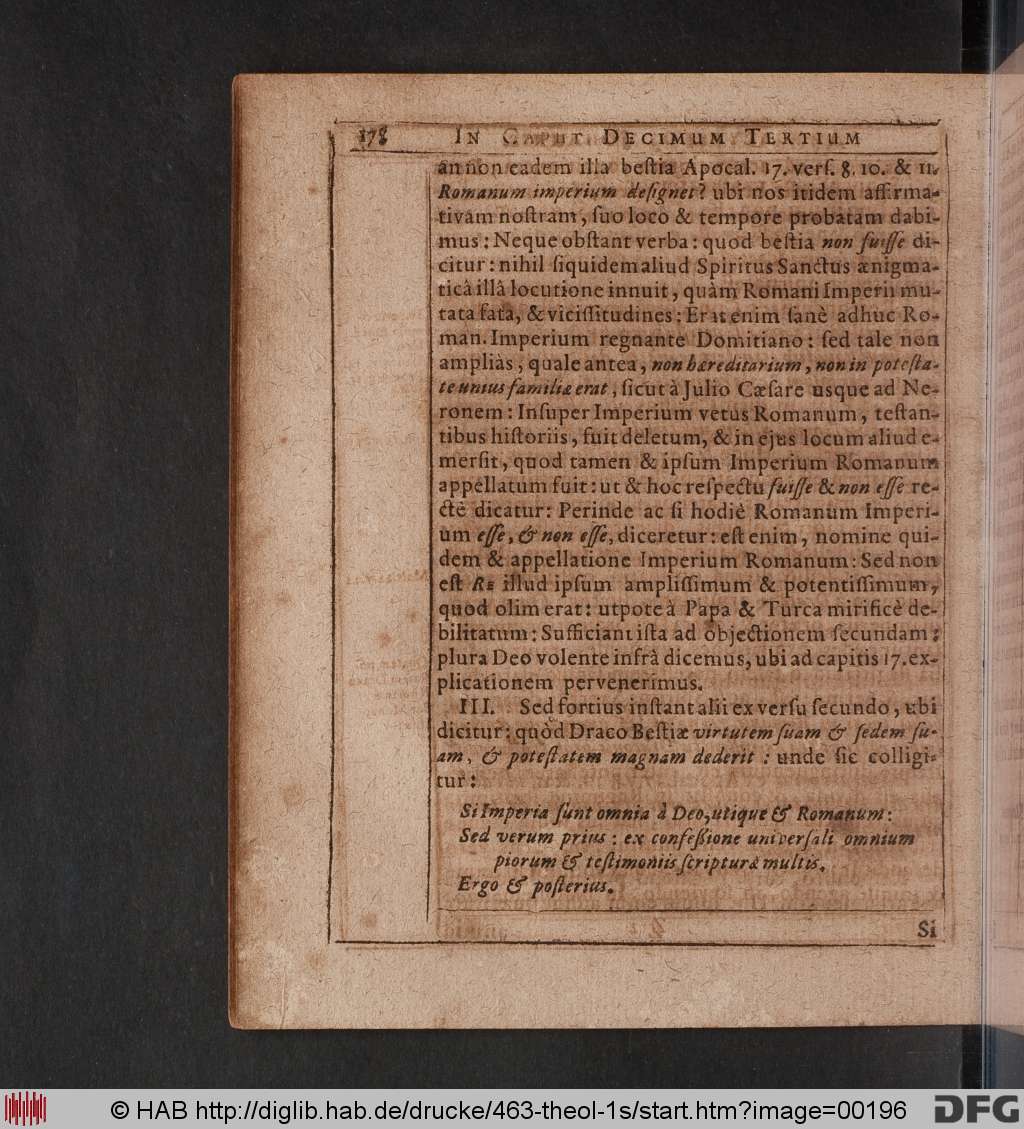 178 IN CAPUT DECIMUM TERTIUM
an non eadem illa beſtia Apocal. 17. verſ. 8. 10. & 11.
Romanum imperium deſignet? ubi nos itidem affirma-
tivam noſtram, ſuo loco & tempore probatam dabi-
mus: Neque obſtant verba: quod beſtia non fuiſſe di-
citur: nihil ſiquidem aliud Spiritus Sanctus ænigma-
ticâ illâ locutione innuit, quàm Romani Imperii mu-
tata fata, & viciſſitudines: Erat enim ſanè adhuc Ro-
man. Imperium regnante Domitiano: ſed tale non
ampliàs, quale antea, non hæreditarium, non in poteſta-
te unius familiæ erat, ſicut à Julio Cæſare usque ad Ne-
ronem: Inſuper Imperium vetus Romanum, teſtan-
tibus hiſtoriis, fuit deletum, & in ejus locum aliud e-
merſit, quod tamen & ipſum Imperium Romanum
appellatum fuit: ut & hoc reſpectu fuiſſe & non eſſe re-
ctè dicatur: Perinde ac ſi hodiè Romanum Imperi-
um eſſe, & non eſſe, diceretur: eſt enim, nomine qui-
dem & appellatione Imperium Romanum: Sed non
eſt Re illud ipſum ampliſſimum & potentiſſimum,
quod olim erat: utpote à Papa & Turca mirificè de-
bilitatum: Sufficiant iſta ad objectionem ſecundam:
plura Deo volente infrà dicemus, ubi ad capitis 17. ex-
plicationem pervenerimus.
III. Sed fortius inſtant alii ex verſu ſecundo, ubi
dicitur: quòd Draco Beſtiæ virtutem ſuam & ſedem ſu-
am, & poteſtatem magnam dederit: unde ſic colligi-
tur:
Si Imperia ſunt omnia à Deo, utique & Romanum:
Sed verum prius: ex confeßione univerſali omnium
piorum & teſtimoniis ſcripturæ multis.
Ergo & poſterius.
Si
© HAB http://diglib.hab.de/drucke/463-theol-1s/start.htm?image=00196
DFG